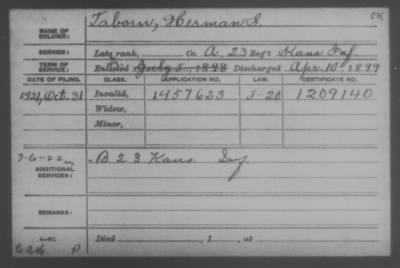 CK
NAME OF SOLDIER: Taborn, Herman S.
SERVICE: Late rank, Co. A, 23 Reg't Kans Inf.
TERM OF SERVICE: Enlisted July 5, 1898 Discharged Apr. 10, 1899
DATE OF FILING. CLASS. APPLICATION NO. LAW. CERTIFICATE NO.
1921, Oct. 31 Invalid, 1457623 J-20 1209140
Widow,
Minor,
7-6-22 B 23 Kans. Inf.
ADDITIONAL SERVICES:
REMARKS:
Died , 1 , at
P